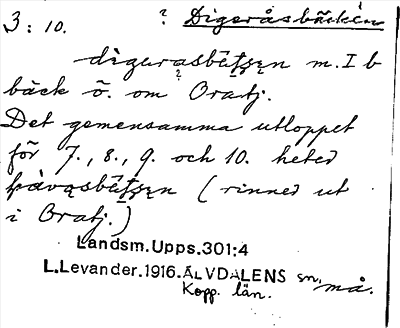 3:10. ? Digeråsbäcken
digeråsbẹ̄tsẹn m. I b
bäck ö. om Oratj.
?
Det gemensamma utloppet
för 7., 8., 9. och 10. heter
( rinner ut
i Oratj.)
Landsm. Upps. 301:4
L. Levander. 1916. ÄLVDALENS sn,
Kopp. län. må.